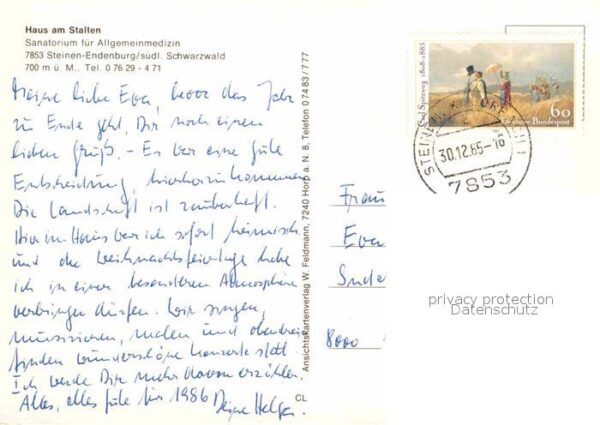 Haus am Stalten
Sanatorium für Allgemeinmedizin
7853 Steinen-Endenburg/südl. Schwarzwald
700 m ü. M., Tel. 0 76 29 - 4 71
Meine liebe Eva, bevor das Jahr
zu Ende geht, Dir noch einen
lieben Gruß. - Es war eine gute
Entscheidung, hierherzukommen.
Die Landschaft ist zauberhaft.
Hier im Haus war ich sofort heimisch
und die Weihnachtsfeiertage habe
ich in einer besonderen Atmosphäre
verbringen dürfen. Wir singen,
musizieren, malen und obendrein
finden wunderschöne Konzerte statt.
Ich werde Dir mehr davon erzählen.
Alles, alles gute für 1986 Deine Helga
CL
Ansichtskartenverlag W. Feldmann, 7240 Horb a. N. 8, Telefon 0 74 83 / 7 77
Carl Spitzweg 1808-1885
60
Deutsche Bundespost
STEINEN
1
30.12.85-16
7853
Frau
Eva
8000
privacy protection
Datenschutz